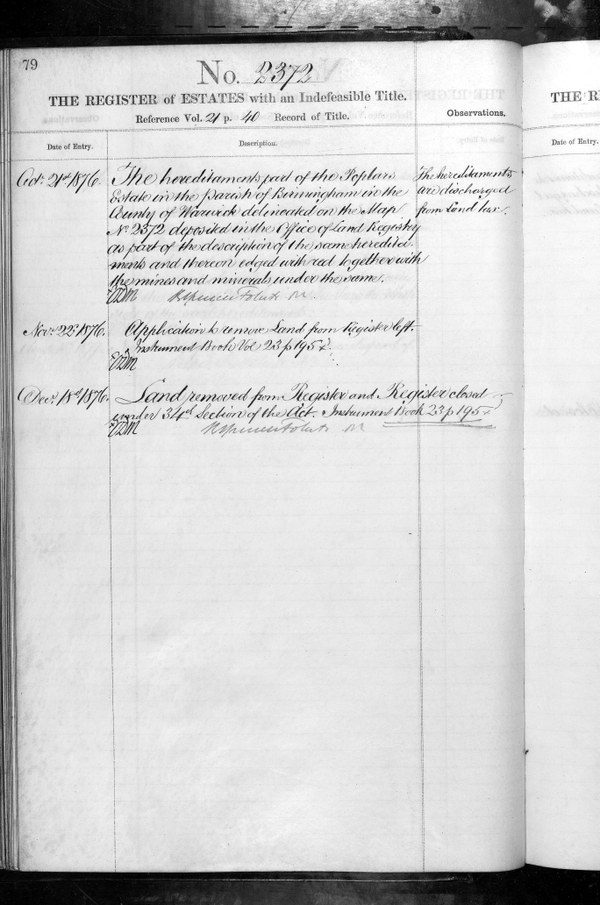 79
No. 2372
THE REGISTER of ESTATES with an Indefeasible Title.
Reference Vol. 21 p. 40 Record of Title.
Observations.
Date of Entry.
Description.
Octr. 21st 1876.
The hereditaments part of the Poplars
Estate in the Parish of Birmingham in the
County of Warwick delineated on the Map
No. 2372 deposited in the Office of Land Registry
as part of the description of the same heredita-
ments and thereon edged with red together with
the mines and minerals under the same.
The hereditaments
are discharged
from Land tax.
Novr. 22d 1876.
Application to remove Land from Register left.
Instrument Book Vol 23 p 195
Decr. 18th 1876.
Land removed from Register and Register closed
under 34th Section of the Act. Instrument Book 23 p 195
THE R
Date of Entry.